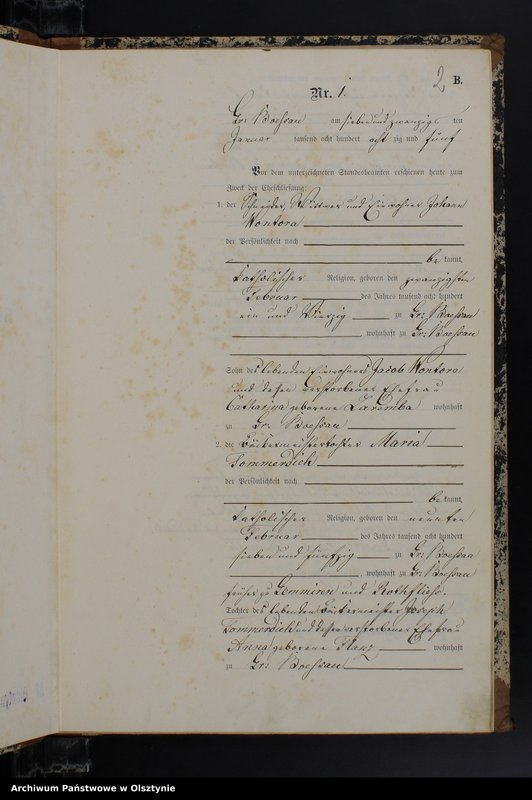 2 B.
Nr. 1.
Gr: Boessau am sieben und zwanzigs ten
Januar tausend acht hundert acht zig und fünf
Vor dem unterzeichneten Standesbeamten erschienen heute zum
Zweck der Eheschließung:
1. der Schneider, Wittwer und Einwohner Johann
Kontora
der Persönlichkeit nach
be kannt,
katholischer Religion, geboren den zwanzigsten
Februar des Jahres tausend acht hundert
ein und vierzig zu Gr: Boessau
, wohnhaft zu Gr: Boessau
Sohn des lebenden Einwohners Jacob Kontora
und dessen verstorbener Ehefrau
Catharina geborene Zaremba wohnhaft
zu Gr: Boessau
2. die Maria
Pommerdich
der Persönlichkeit nach
be kannt,
katholischer Religion, geboren den neunten
Februar des Jahres tausend acht hundert
sieben und fünfzig zu Gr: Boessau
, wohnhaft zu Gr: Boessau
früher zu und Rothfließ.
Tochter des lebenden Joseph
Pommerdich und dessen verstorbener Ehefrau
Anna geborene wohnhaft
zu Gr: Boessau
Archiwum Państwowe w Olsztynie